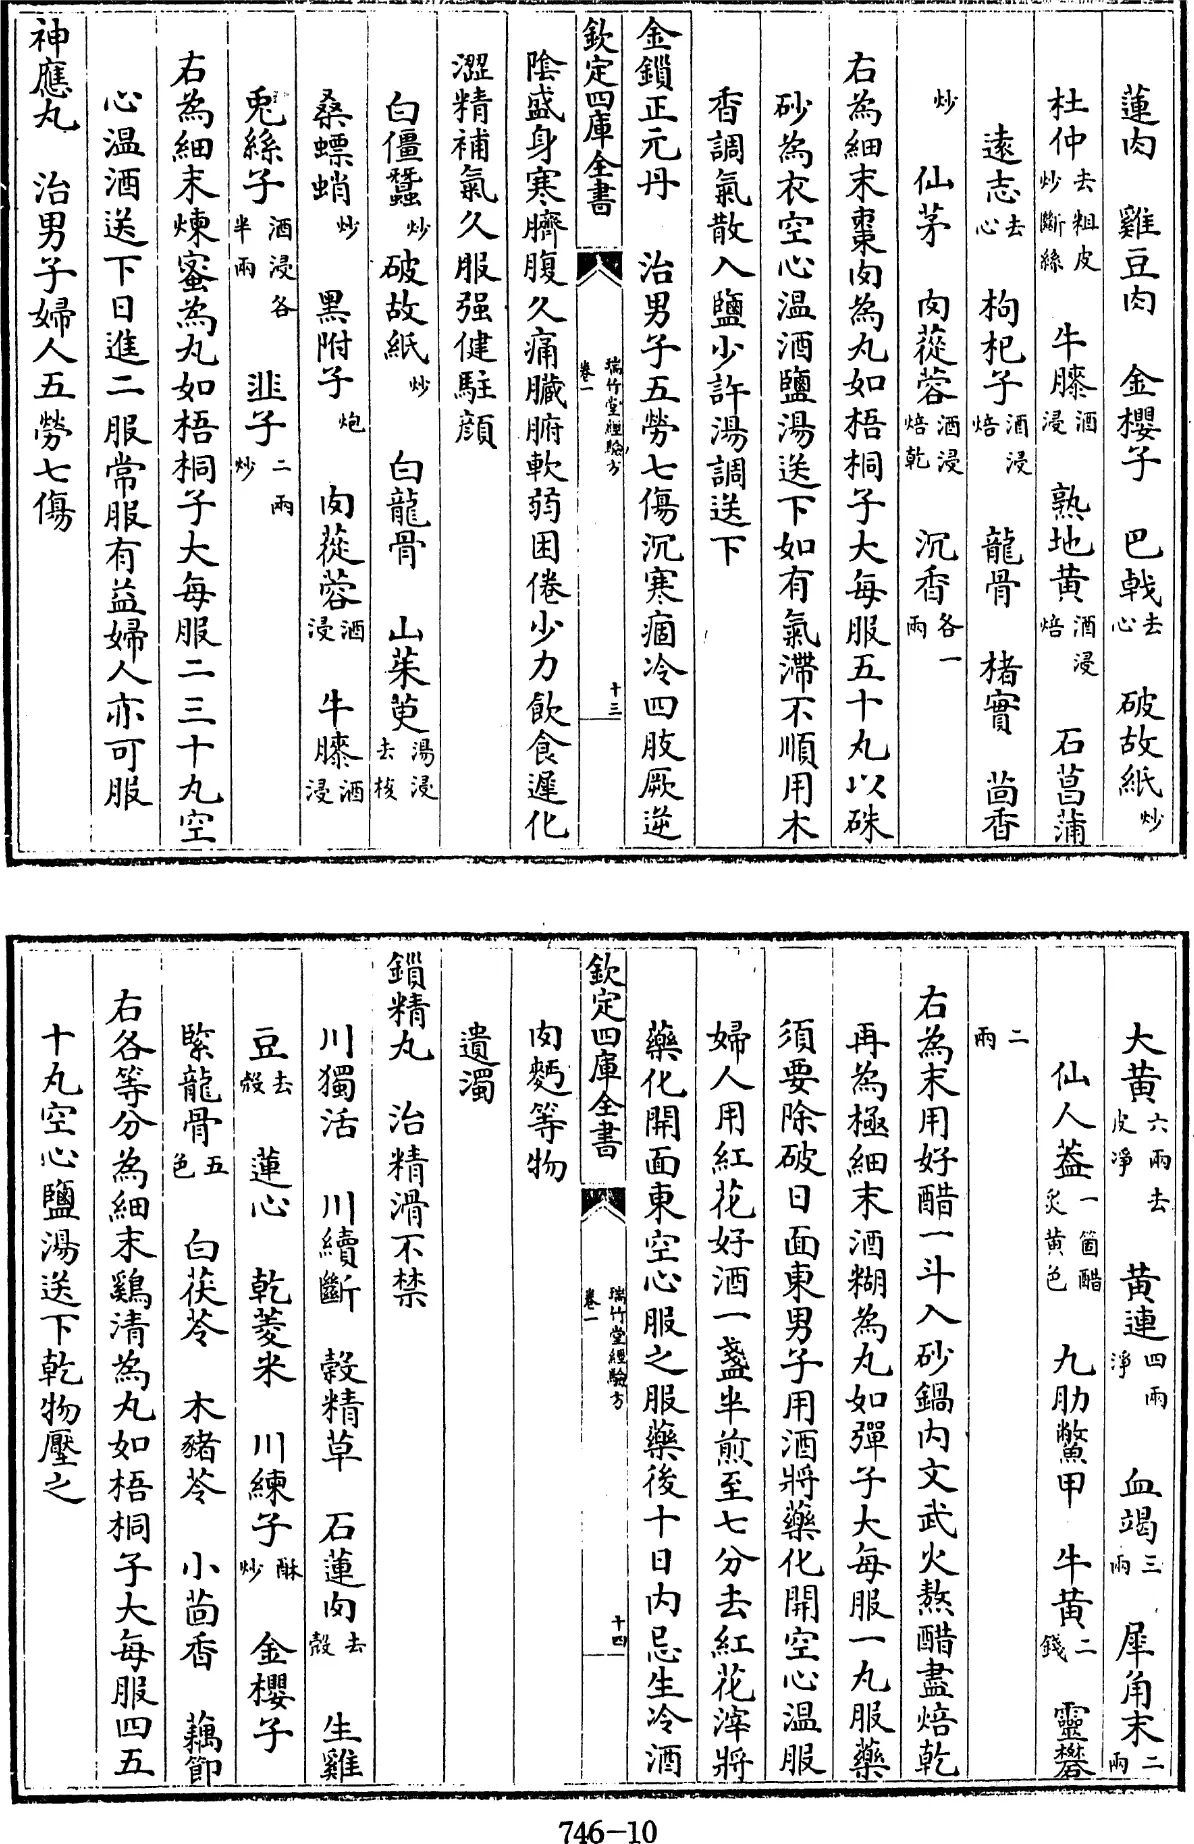 蓮肉　雞豆肉　金櫻子　巴戟去心　破故紙炒
杜仲去粗皮炒斷絲　牛膝酒浸　熟地黄酒浸焙　石菖蒲
遠志去心　枸杞子酒浸焙　龍骨　楮實　茴香
炒　仙茅　肉蓯蓉酒浸焙乾　沉香各一兩
右為細末棗肉為丸如梧桐子大每服五十丸以硃
砂為衣空心温酒鹽湯送下如有氣滯不順用木
香調氣散入鹽少許湯調送下
金鎖正元丹　治男子五勞七傷沉寒痼冷四肢厥逆
欽定四庫全書　瑞竹堂經驗方　卷一　十三
陰盛身寒臍腹久痛臟腑軟弱困倦少力飲食遲化
澀精補氣久服强健駐顔
白僵蠶炒　破故紙炒　白龍骨　山茱萸湯浸去核
桑螵蛸炒　黑附子炮　肉蓯蓉酒浸　牛膝酒浸
兎絲子酒浸各半兩　韭子二兩炒
右為細末煉蜜為丸如梧桐子大每服二三十丸空
心温酒送下日進二服常服有益婦人亦可服
神應丸　治男子婦人五勞七傷
大黄六兩去皮凈　黄連四兩凈　血竭三兩　犀角末二兩
仙人葢一箇醋炙黄色　九肋鱉甲　牛黄二錢　靈礬
二兩
右為末用好醋一斗入砂鍋内文武火熬醋盡焙乾
再為極細末酒糊為丸如彈子大每服一丸服藥
須要除破日面東男子用酒將藥化開空心温服
婦人用紅花好酒一盞半煎至七分去紅花滓將
藥化開面東空心服之服藥後十日内忌生冷酒
欽定四庫全書　瑞竹堂經驗方　卷一　十四
肉麪等物
遺濁
鎖精丸　治精滑不禁
川獨活　川續斷　穀精草　石蓮肉去殼　生雞
豆去殼　蓮心　乾菱米　川練子酥炒　金櫻子
緊龍骨五色　白茯苓　木豬苓　小茴香　藕節
右各等分為細末鷄清為丸如梧桐子大每服四五
十丸空心鹽湯送下乾物壓之
746-10